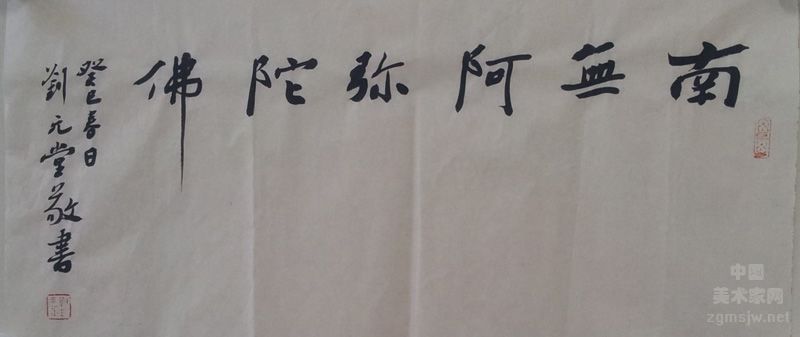 南無阿弥陀佛
癸巳春日
劉元堂敬書
中国
美术家网
zgmsjw.net